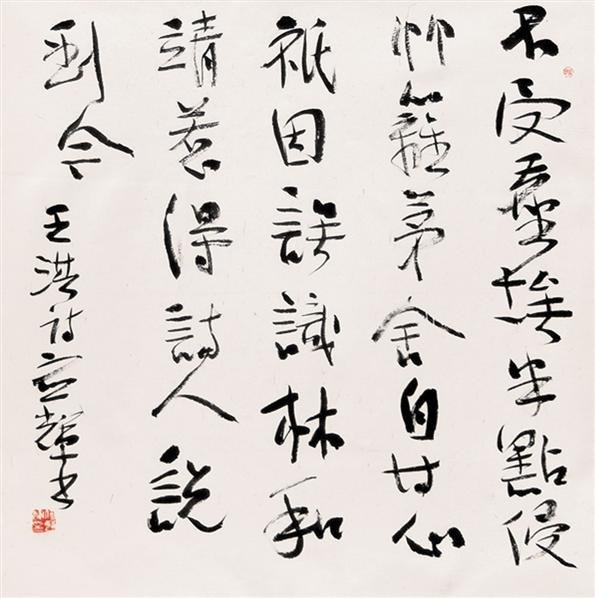 不受塵埃半點侵
竹籬茅舍自甘心
祇因誤識林和
靖惹得詩人說
到今
王淇詩 书